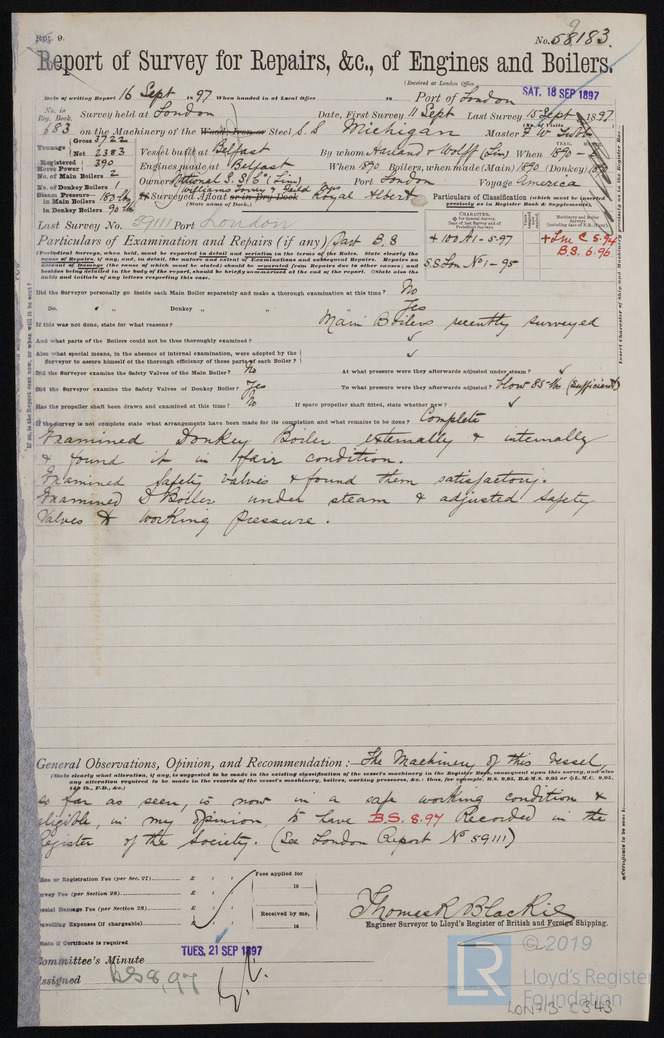 Rpt. 9.
No. 59183.
Report of Survey for Repairs, &c., of Engines and Boilers.
(Received at London Office
SAT. 18 SEP 1897
Date of writing Report 16 Sept 1897 When handed in at Local Office 18 Port of London
No. in Reg. Book. Survey held at London Date, First Survey 11 Sept Last Survey 15 Sept 1897
683 on the Machinery of the Wood, Iron or Steel S.S Michigan Master F W
Tonnage Gross 3722
Net 2383 Vessel built at Belfast By whom Harland & Wolff (Lim) When 1890
Registered Horse Power 390 Engines made at Belfast When 1890 Boilers, when made (Main) 1890 (Donkey) 1890
No. of Main Boilers 2 Owners National S.S. Co (Lim) Port London Voyage America
No. of Donkey Boilers 1 Williams Torrey &
Steam Pressure in Main Boilers 180 lb If Surveyed Afloat or in Dry Dock Royal Albert
in Donkey Boilers 90 lb (State name of Dock.)
Particulars of Classification (which must be inserted precisely as in Register Book & Supplements).
Last Survey No. 59111 Port London
CHARACTER.
Machinery and Boiler Surveys
+100A1-5.97 +LMC 5.94
B.S. 6.96
S.S. Lon. No 1-95
Particulars of Examination and Repairs (if any) Part B.S
(Periodical Surveys, when held, must be reported in detail and seriatim in the terms of the Rules. State clearly the
Did the Surveyor personally go inside each Main Boiler separately and make a thorough examination at this time? No
Do. " " Donkey " " " Yes
If this was not done, state for what reasons? Main Boilers recently surveyed
And what parts of the Boilers could not be thus thoroughly examined? ✓
Also what special means, in the absence of internal examination, were adopted by the Surveyor to assure himself of the thorough efficiency of those parts of each Boiler? ✓
Did the Surveyor examine the Safety Valves of the Main Boiler? No At what pressure were they afterwards adjusted under steam? ✓
Did the Surveyor examine the Safety Valves of Donkey Boiler? Yes To what pressure were they afterwards adjusted? blow 85 lb (sufficient)
Has the propeller shaft been drawn and examined at this time? No If spare propeller shaft fitted, state whether new? ✓
If the survey is not complete state what arrangements have been made for its completion and what remains to be done? Complete
Examined Donkey Boiler externally & internally
& found it in fair condition.
Examined safety valves & found them satisfactory.
Examined D Boiler under steam & adjusted safety
valves to working pressure.
General Observations, Opinion, and Recommendation:— The Machinery of this vessel,
(State clearly what alteration, if any, is suggested to be made in the existing classification of the vessel's machinery in the Register Book, consequent upon this survey, and also
any alteration required to be made in the records of the vessel's machinery, boilers, working pressures, &c.: thus, for example, B.S. 9,95, B.&M.S. 9,95 or L.M.C. 9,95,
140 lb., F.D., &c.)
so far as seen, is now in a safe working condition &
eligible, in my opinion, to have B.S. 8.97 Recorded in the
Register of the Society. (See London Report No 59111)
Office or Registration Fee (per Sec. 27) £ : : Fees applied for
Survey Fee (per Section 28) £ : : 18
Special Damage Fee (per Section 28) £ : : Received by me,
Travelling Expenses (if chargeable) £ : : 18
Thomas R Blackie
Engineer Surveyor to Lloyd's Register of British and Foreign Shipping.
State if Certificate is required
TUES. 21 SEP 1897
Committee's Minute
Assigned BS 8,97
© 2019
Lloyd's Register
Foundation
LR
LON713-C343